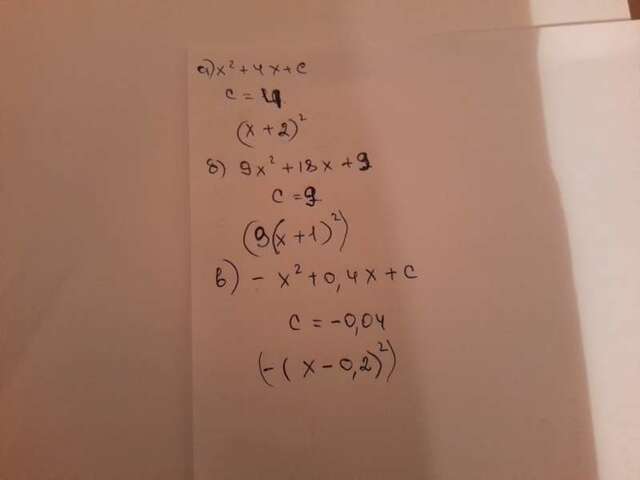 а) x² + 4x + c
c = 4
(x + 2)²
б) 9x² + 18x + 9
c = 9
(9(x + 1)²)
в) - x² + 0,4x + c
c = -0,04
(-(x - 0,2)²)